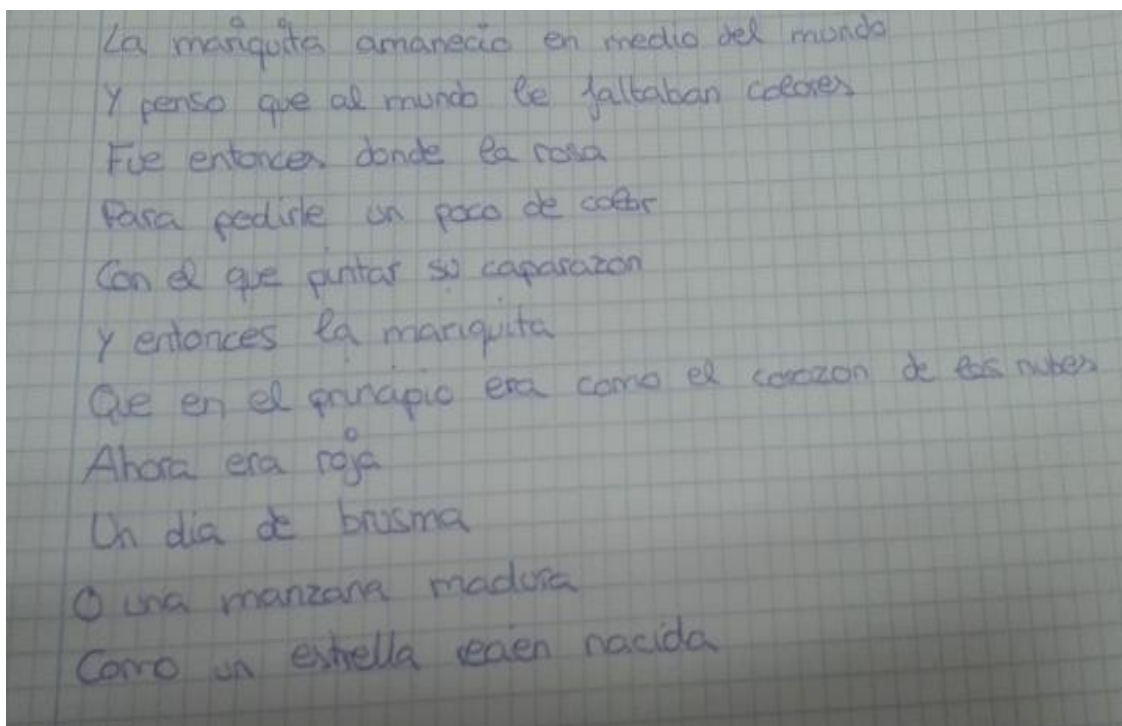 La mariquita amanecio en medio del mundo
Y penso que al mundo le faltaban colores
Fue entonces donde la rosa
Para pedirle un poco de color
Con el que pintar su caparazon
Y entonces la mariquita
Que en el principio era como el corazon de las nubes
Ahora era roja
Un dia de brusma
O una manzana madura
Como un estrella recien nacida